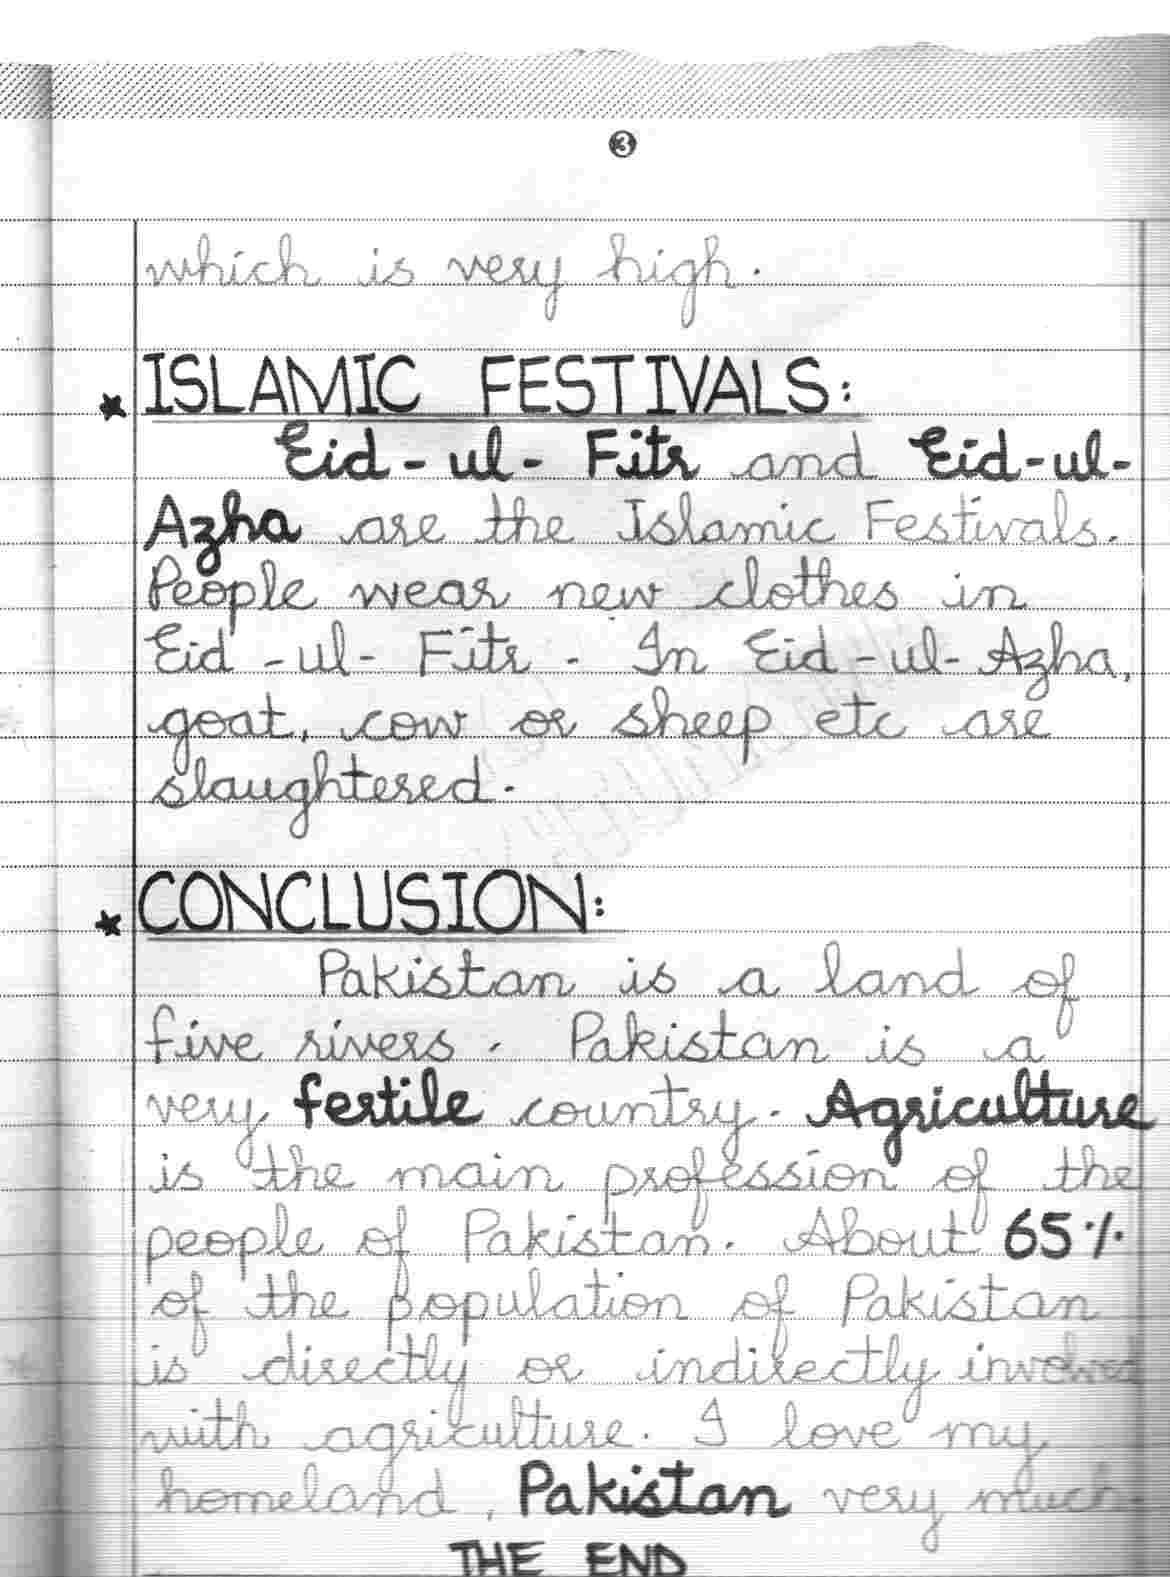 3
which is very high.
★ ISLAMIC FESTIVALS:
Eid-ul-Fitr and Eid-ul-
Azha are the Islamic Festivals.
People wear new clothes in
Eid-ul-Fitr. In Eid-ul-Azha,
goat, cow or sheep etc are
slaughtered.
★ CONCLUSION:
Pakistan is a land of
five rivers. Pakistan is a
very fertile country. Agriculture
is the main profession of the
people of Pakistan. About 65%
of the population of Pakistan
is directly or indirectly involved
with agriculture. I love my
homeland, Pakistan very much.
THE END